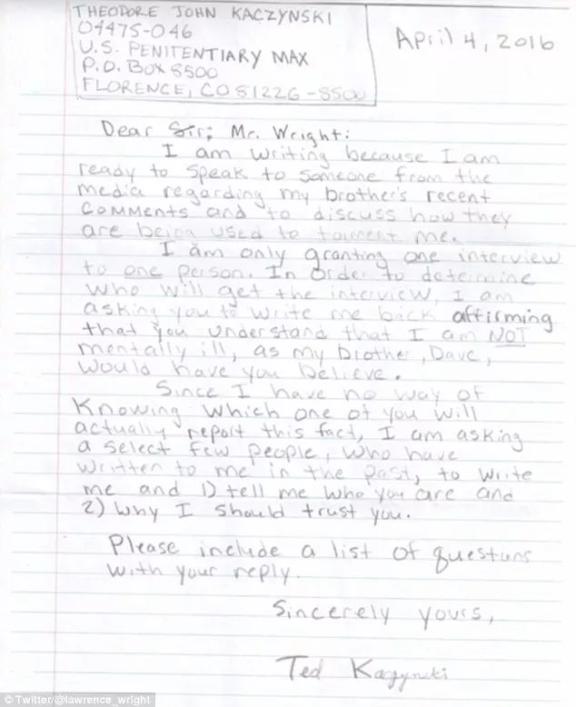 THEODORE JOHN KACZYNSKI
04475-046
U.S. PENITENTIARY MAX
P.O. BOX 8500
FLORENCE, CO 81226-8500
April 4, 2016
Dear Sir; Mr. Wright:
I am writing because I am
ready to speak to someone from the
media regarding my brother's recent
comments and to discuss how they
are being used to torment me.
I am only granting one interview
to one person. In order to determine
who will get the interview, I am
asking you to write me back affirming
that you understand that I am NOT
mentally ill, as my brother, Dave,
would have you believe.
Since I have no way of
Knowing which one of you will
actually report this fact, I am asking
a select few people, who have
written to me in the past, to write
me and 1) tell me who you are and
2) why I should trust you.
Please include a list of questions
with your reply.
Sincerely yours,
Ted Kaczynski
© Twitter/@lawrence_wright